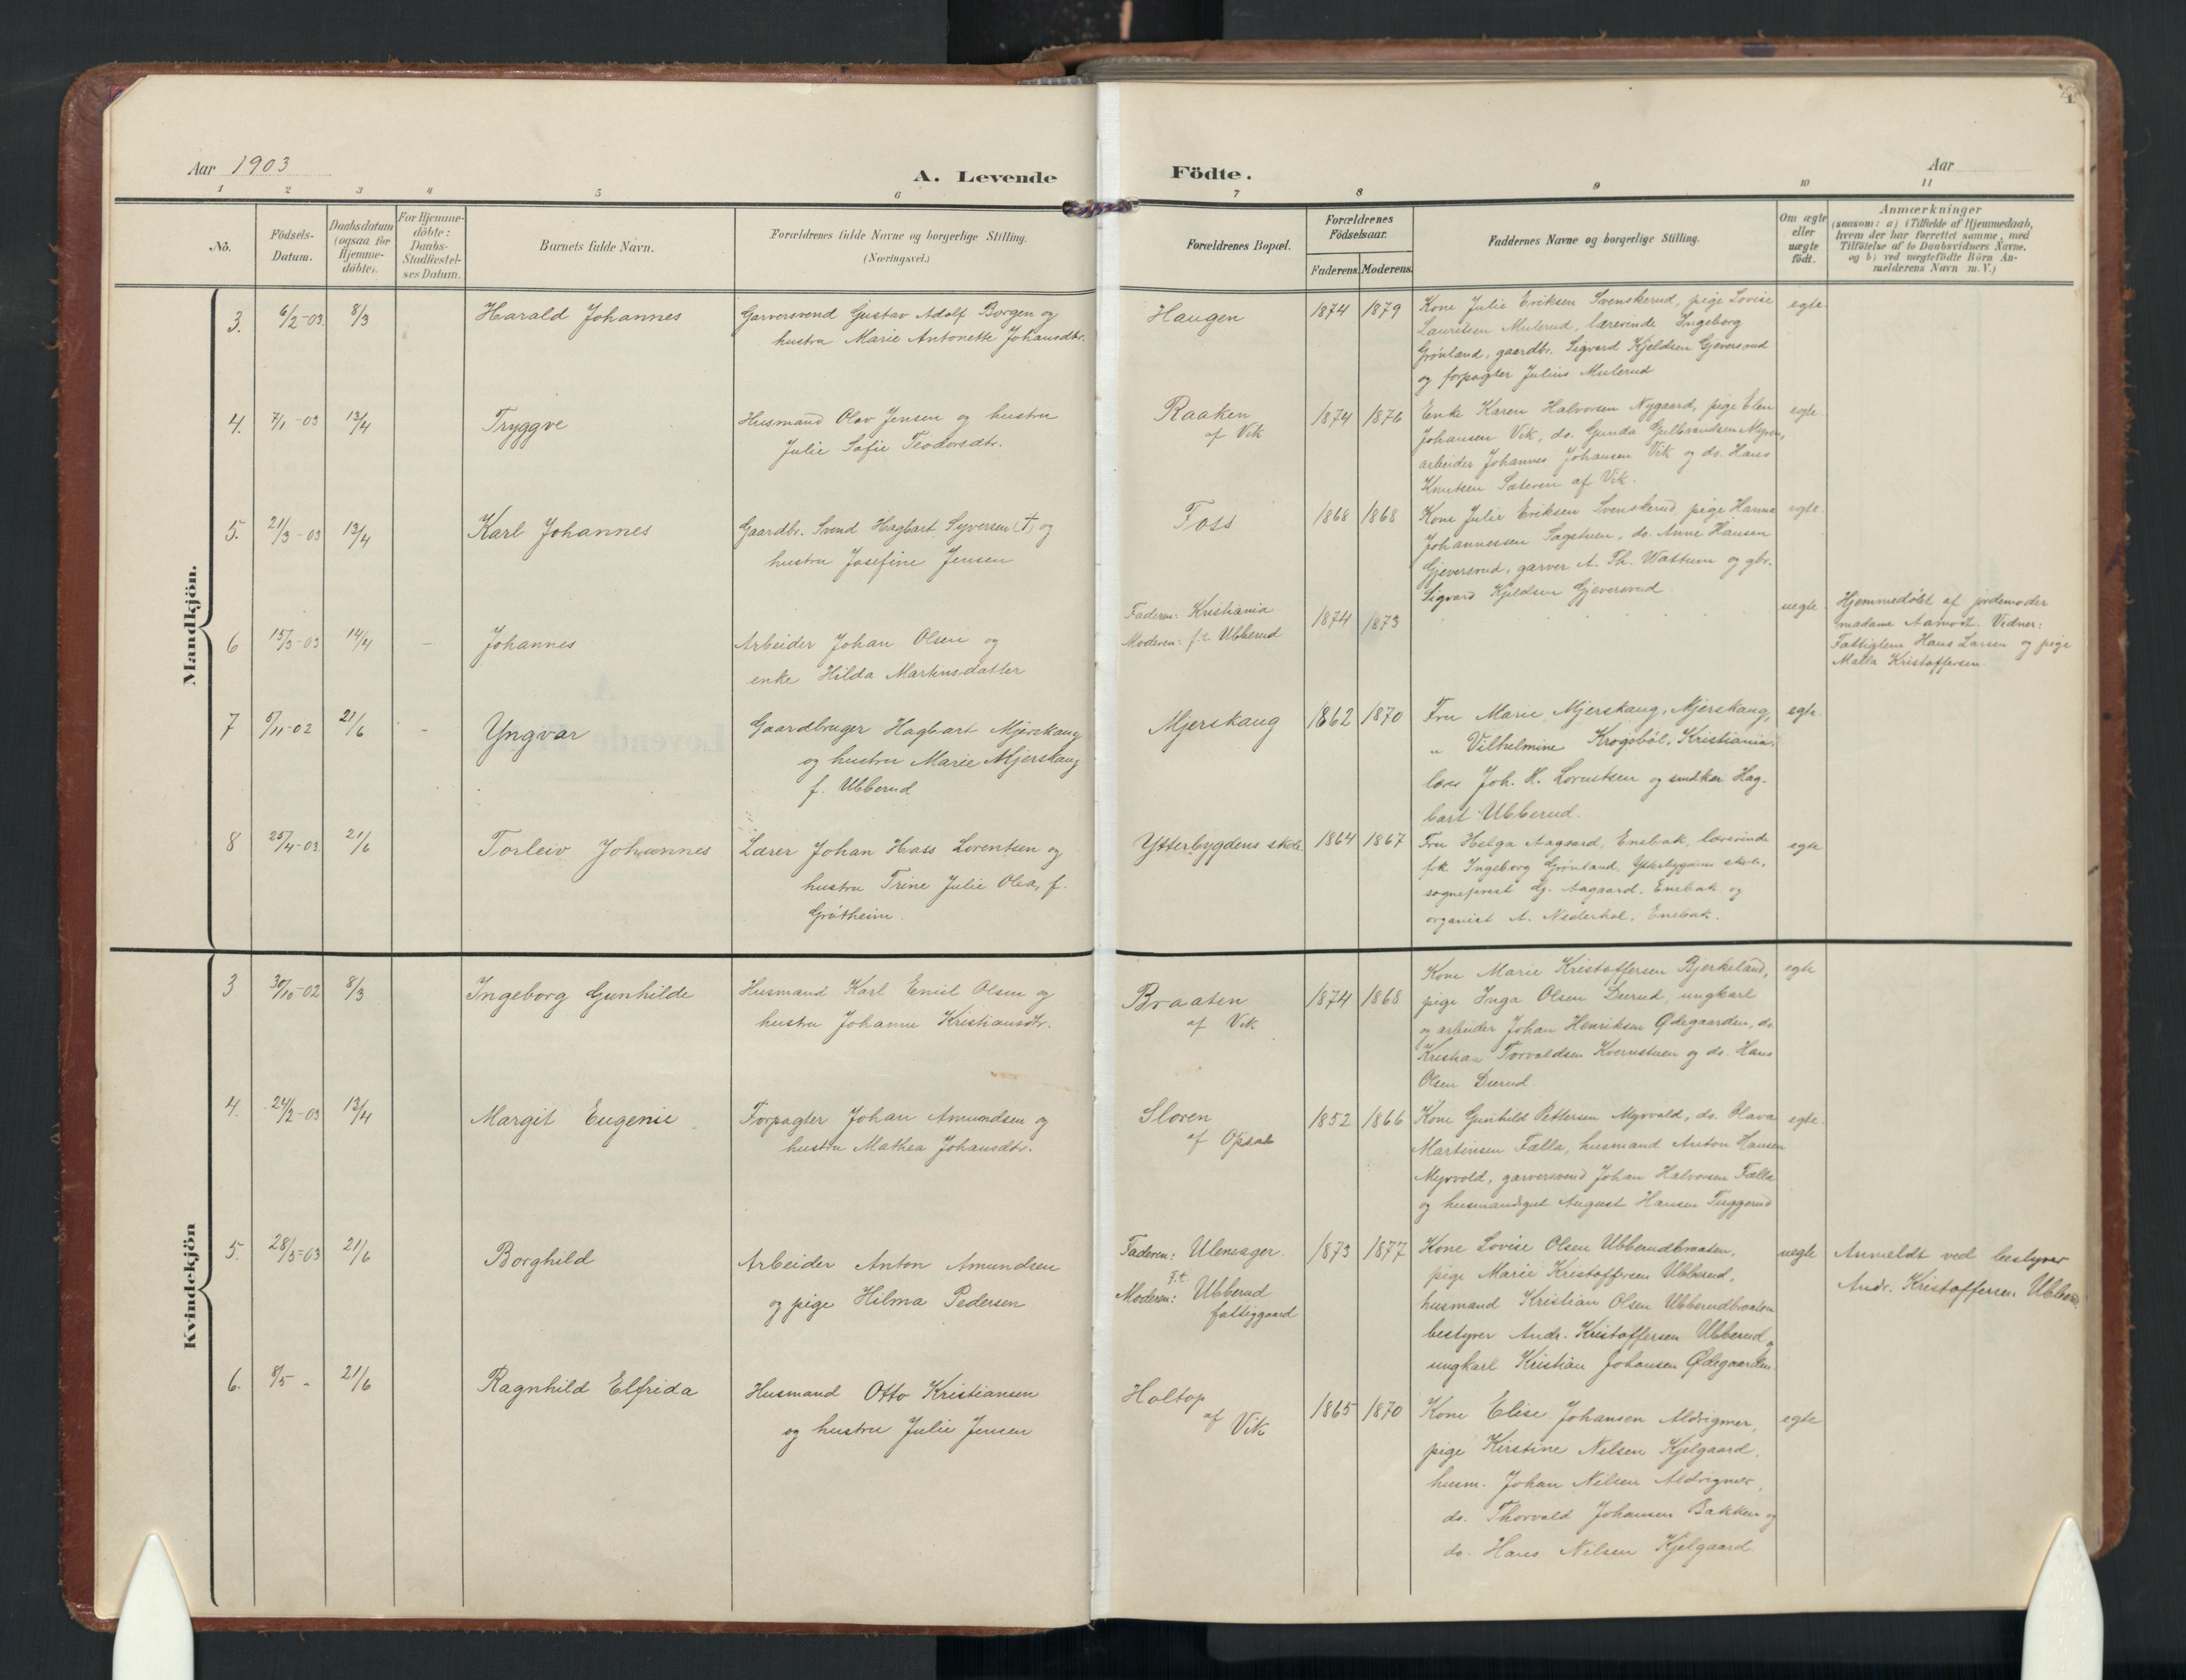 Aar 1903
A. Levende
Födte.
Aar
1 2 3 4 5 6 7 8 9 10 11
No.
Födsels-
Datum.
Daabsdatum
(ogsaa for
Hjemme-
döbte).
For Hjemme-
döbte:
Daabs-
Stadfæstel-
ses Datum.
Barnets fulde Navn.
Forældrenes fulde Navne og borgerlige Stilling.
(Næringsvei.)
Forældrenes Bopæl.
Forældrenes
Födselsaar.
Faderens. Moderens.
Faddernes Navne og borgerlige Stilling.
Om ægte
eller
uægte
födt.
Anmærkninger
(saasom: a) i Tilfælde af Hjemmedaab,
hvem der har forrettet samme, med
Tilföielse af to Daabsvidners Navne,
og b) ved uægtefödte Börn An-
melderens Navn m. V.)
Mandkjön.
3. 6/2-03 8/3 Harald Johannes
Garversvend Gustav Adolf Borgen og
hustru Marie Antonette Johansdtr.
Haugen
1874 1879
Kone Julie Eriksen Svenskerud, pige Lovise
Lauritsen Mulerud, lærerinde Ingeborg
Grönland, gaardbr. Sigvard Kjeldsen Gjeversrud
og forpagter Julius Mulerud
egte
4. 7/1-03 13/4 Tryggve
Husmand Olav Jensen og hustru
Julie Sofie Teodorsdtr.
Raaken
af Vik
1874 1876
Enke Karen Halvorsen Nygaard, pige Elen
Johansen Vik, do. Gunda Gulbrandsen Myren,
arbeider Johannes Johansen Vik og do. Hans
Knutsen Sæteren af Vik.
egte
5. 21/3-03 13/4 Karl Johannes
Gaardbr. Svend Hagbart Syversen (†) og
hustru Josefine Jensen
Foss
1868 1868
Kone Julie Eriksen Svenskerud, pige Hanna
Johannessen Sagstuen, do. Anne Hansen
Gjeversrud, garver A. Th. Wattum og gbr.
Sigvard Kjeldsen Gjeversrud
egte.
6 15/3-03 14/4 - Johannes
Arbeider Johan Olsen og
enke Hilda Martinsdatter
Faderen: Kristiania
Moderen: f.t. Ubberud
1874 1873
uegte
Hjemmedöbt af jordemoder
madame Aamodt. Vidner:
Fattiglem Hans Larsen og pige
Malla Kristoffersen.
7 5/11-02 21/6 - Yngvar
Gaardbruger Hagbart Mjerskaug
og hustru Marie Mjerskaug
f. Ubberud
Mjerskaug
1862 1870
Fru Marie Mjerskaug, Mjerskaug,
" Vilhelmine Krogsböl, Kristiania,
lærer Joh. H. Lorentsen og snedker Hag-
bart Ubberud.
egte.
8 25/4-03 21/6 Torleiv Johannes
Lærer Johan Hass Lorentsen og
hustru Trine Julie Olea, f.
Grötheim.
Ytterbygdens skole
1864 1867
Fru Helga Aagaard, Enebak, lærerinde
frk. Ingeborg Grönland, Ytterbygdens skole,
sogneprest Aagaard, Enebak og
organist A. Nederhol, Enebak.
egte
Kvindekjön
3 30/10-02 8/3 Ingeborg Gunhilde
Husmand Karl Emil Olsen og
hustru Johanne Kristiansdtr.
Braaten
af Vik
1874 1868
Kone Marie Kristoffersen Bjerkeland,
pige Inga Olsen Durud, ungkarl
og arbeider Johan Henriksen Ødegaarden, do.
Kristian Torvaldsen Kvernstuen og do. Hans
Olsen Durud.
egte
4. 24/2-03 13/4 Margit Eugenie
Forpagter Johan Amundsen og
hustru Mathea Johansdtr.
Sloren
af Opsal
1852 1866
Kone Gunhild Pettersen Myrvold, do. Olava
Martinsen Fælla, husmand Anton Hansen
Myrvold, garversvend Johan Halvorsen Fælla
og husmandsgut August Hansen Tuggerud
egte.
5. 28/3-03 21/6 Borghild
Arbeider Anton Amundsen
og pige Hilma Pedersen
Faderen: Ulensager.
Moderen: f.t. Ubberud
fattiggaard
1873 1877
Kone Lovise Olsen Ubberudbraaten,
pige Marie Kristoffersen Ubberud,
husmand Kristian Olsen Ubberudbraaten
bestyrer Andr. Kristoffersen Ubberud og
ungkarl Kristian Johansen Ødegaarden.
uegte
Anmeldt ved bestyrer
Andr. Kristoffersen Ubberud
6. 8/5 - 21/6 Ragnhild Elfrida
Husmand Otto Kristiansen
og hustru Julie Jensen
Holtop
af Vik
1865 1870
Kone Elise Johansen Aldrigmer,
pige Kirstine Nilsen Kjelgaard,
husm. Johan Nilsen Aldrigmer,
do. Thorvald Johansen Bakken og
do. Hans Nilsen Kjelgaard.
egte